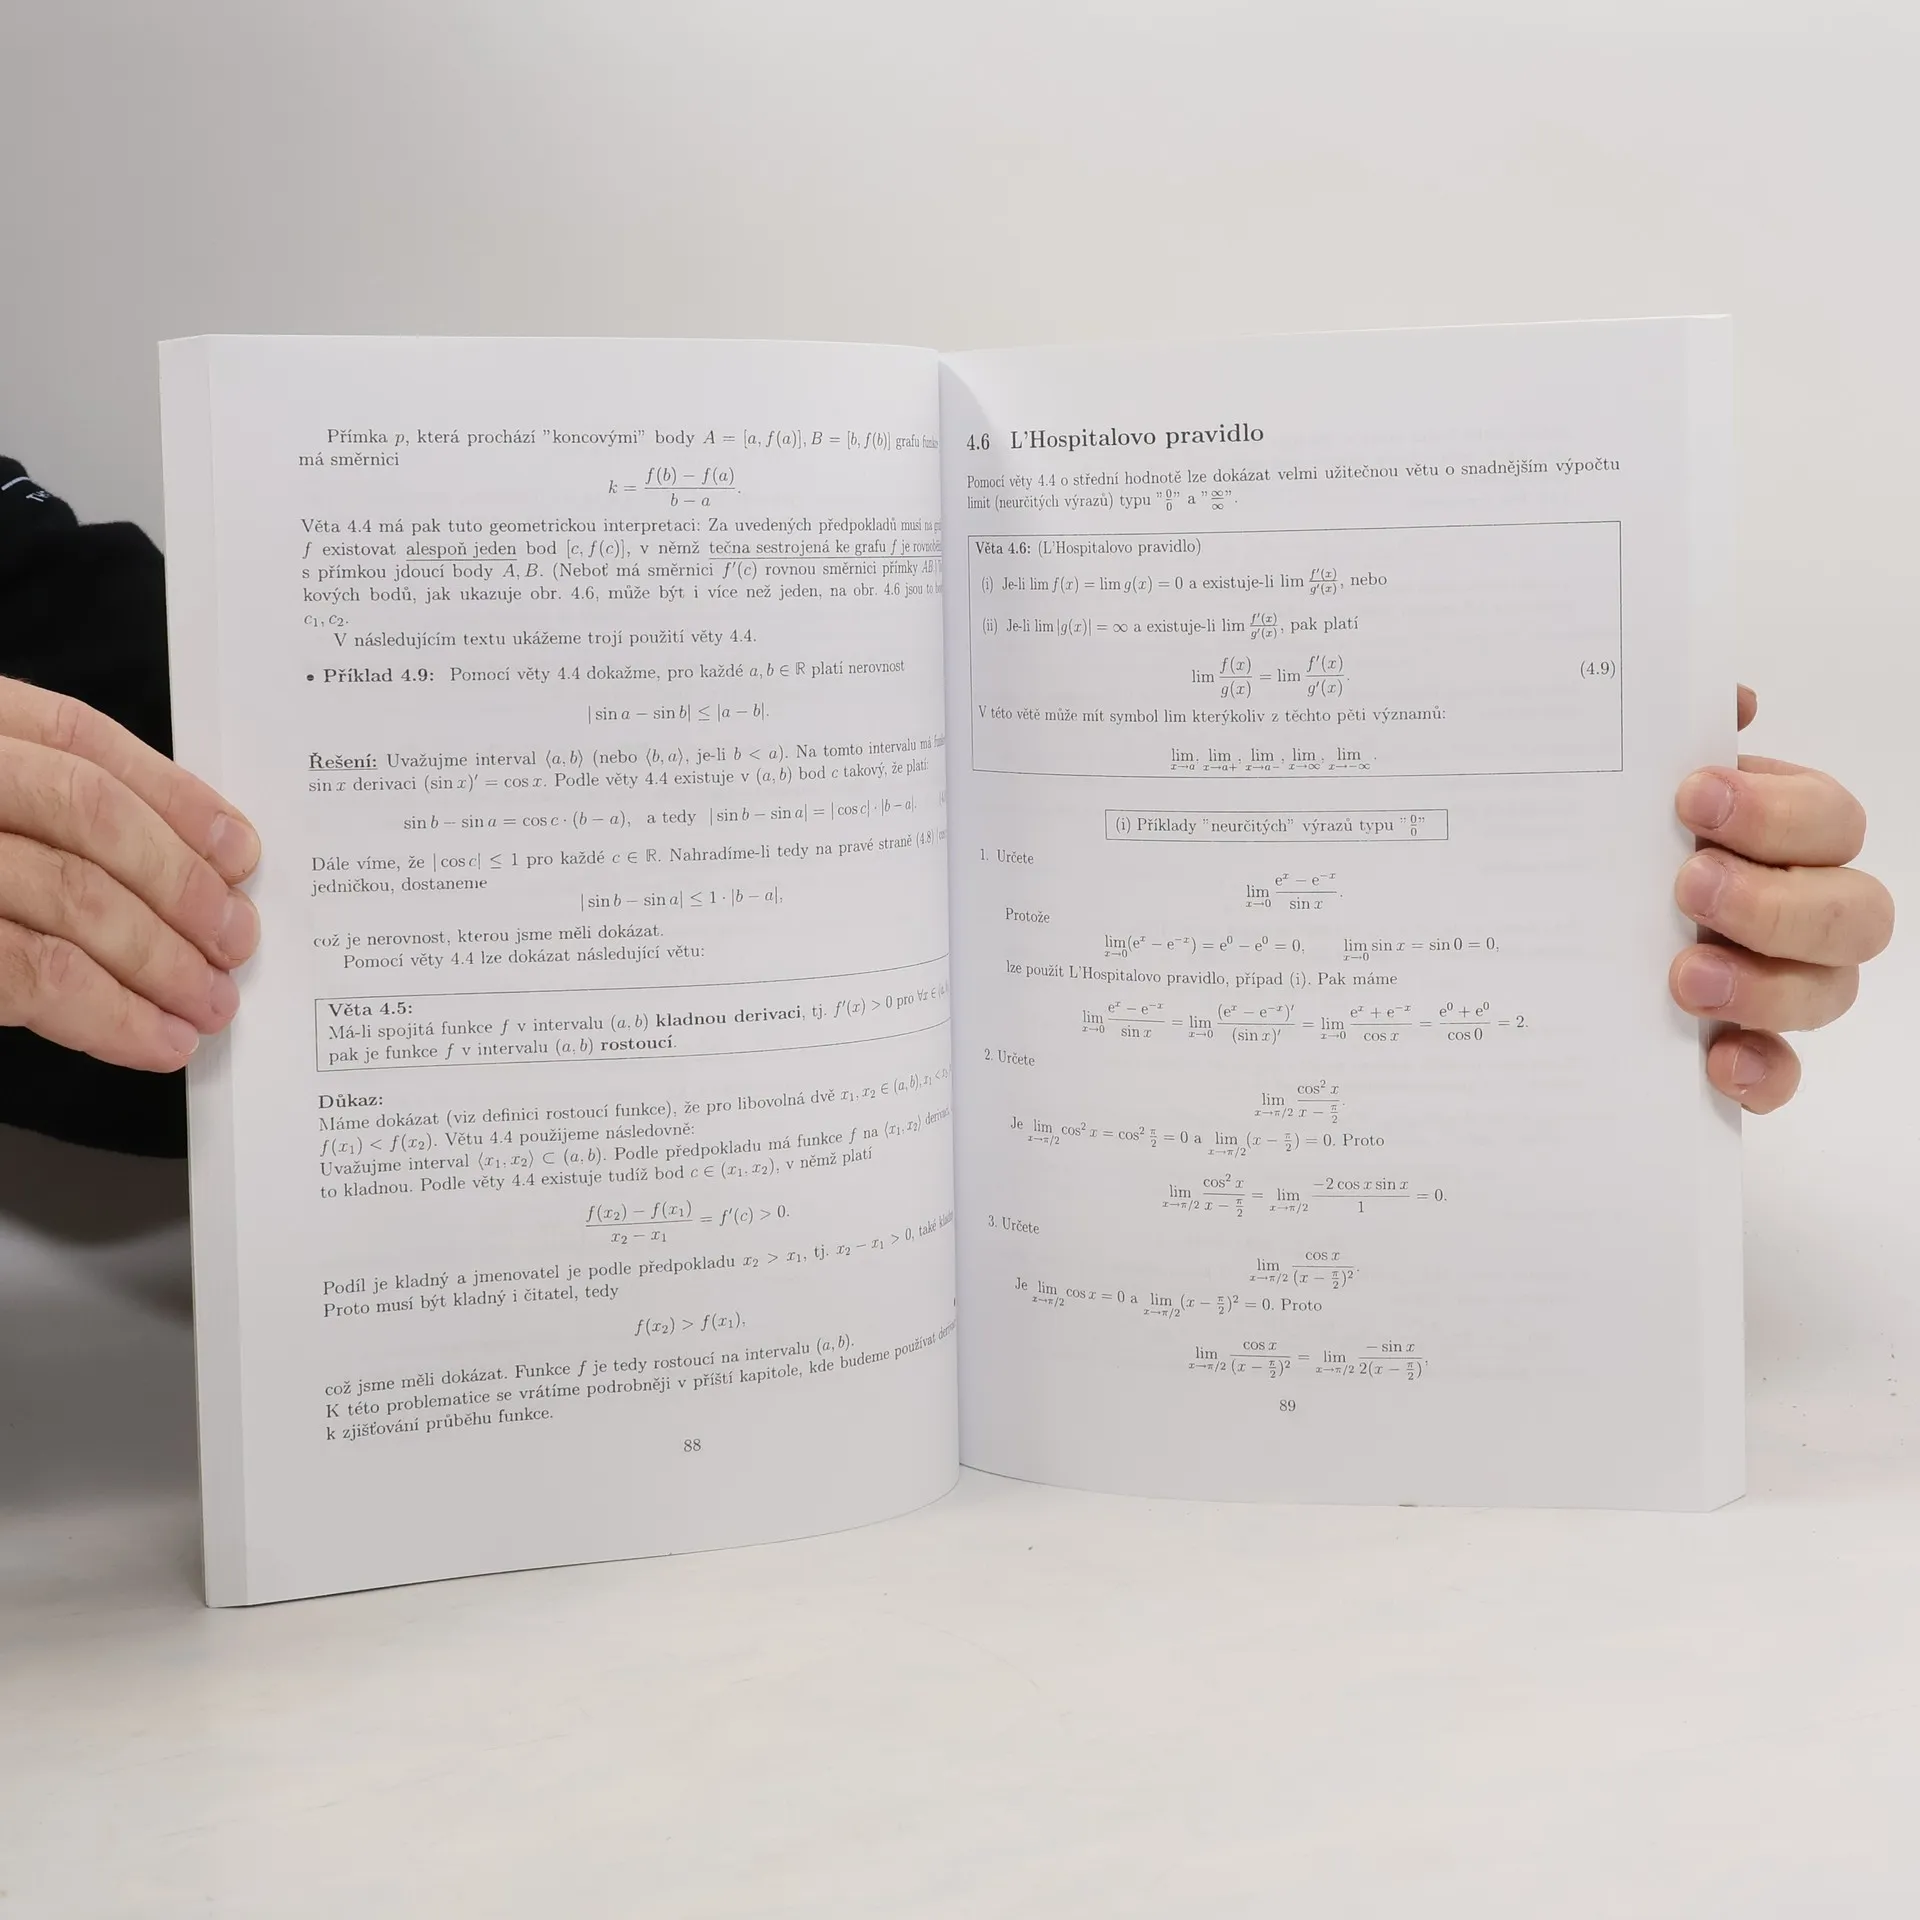 Přímka p, která prochází "koncovými" body A = [a, f(a)], B = [b, f(b)] grafu funkce
má směrnici
k = \frac{f(b) − f(a)}{b − a}.
Věta 4.4 má pak tuto geometrickou interpretaci: Za uvedených předpokladů musí na
f existovat alespoň jeden bod [c, f(c)], v němž tečna sestrojená ke grafu f je
s přímkou jdoucí body A, B. (Neboť má směrnici f′(c) rovnou směrnici přímky AB.)
kových bodů, jak ukazuje obr. 4.6, může být i více než jeden, na obr. 4.6 jsou to
c₁, c₂.
V následujícím textu ukážeme trojí použití věty 4.4.
• Příklad 4.9: Pomocí věty 4.4 dokažme, pro každé a, b ∈ ℝ platí nerovnost
| sin a − sin b| ≤ |a − b|.
Řešení: Uvažujme interval ⟨a, b⟩ (nebo ⟨b, a⟩, je-li b < a). Na tomto intervalu má
sin x derivaci (sin x)′ = cos x. Podle věty 4.4 existuje v (a, b) bod c takový, že platí:
sin b − sin a = cos c · (b − a), a tedy | sin b − sin a| = | cos c| · |b − a|.
Dále víme, že | cos c| ≤ 1 pro každé c ∈ ℝ. Nahradíme-li tedy na pravé straně (4.8)
jedničkou, dostaneme
| sin b − sin a| ≤ 1 · |b − a|,
což je nerovnost, kterou jsme měli dokázat.
Pomocí věty 4.4 lze dokázat následující větu:
Věta 4.5:
Má-li spojitá funkce f v intervalu (a, b) kladnou derivaci, tj. f′(x) > 0 pro ∀x ∈
pak je funkce f v intervalu (a, b) rostoucí.
Důkaz:
Máme dokázat (viz definici rostoucí funkce), že pro libovolná dvě x₁, x₂ ∈ (a, b), x₁ < x₂
f(x₁) < f(x₂). Větu 4.4 použijeme následovně:
Uvažujme interval ⟨x₁, x₂⟩ ⊂ (a, b). Podle předpokladu má funkce f na ⟨x₁, x₂⟩
to kladnou. Podle věty 4.4 existuje tudíž bod c ∈ (x₁, x₂), v němž platí
\frac{f(x₂) − f(x₁)}{x₂ − x₁} = f′(c) > 0.
Podíl je kladný a jmenovatel je podle předpokladu x₂ > x₁, tj. x₂ − x₁ > 0, také
Proto musí být kladný i čitatel, tedy
f(x₂) > f(x₁),
což jsme měli dokázat. Funkce f je tedy rostoucí na intervalu (a, b).
K této problematice se vrátíme podrobněji v příští kapitole, kde budeme používat
k zjišťování průběhu funkce.
88
4.6 L'Hospitalovo pravidlo
Pomocí věty 4.4 o střední hodnotě lze dokázat velmi užitečnou větu o snadnějším výpočtu
limit (neurčitých výrazů) typu "\frac{0}{0}" a "\frac{∞}{∞}".
Věta 4.6: (L'Hospitalovo pravidlo)
(i) Je-li lim f(x) = lim g(x) = 0 a existuje-li lim \frac{f′(x)}{g′(x)}, nebo
(ii) Je-li lim |g(x)| = ∞ a existuje-li lim \frac{f′(x)}{g′(x)}, pak platí
lim \frac{f(x)}{g(x)} = lim \frac{f′(x)}{g′(x)}. (4.9)
V této větě může mít symbol lim kterýkoliv z těchto pěti významů:
\lim_{x→a}, \lim_{x→a+}, \lim_{x→a−}, \lim_{x→∞}, \lim_{x→−∞}.
(i) Příklady "neurčitých" výrazů typu "\frac{0}{0}"
1. Určete
\lim_{x→0} \frac{e^x − e^{−x}}{sin x}.
Protože
\lim_{x→0}(e^x − e^{−x}) = e^0 − e^0 = 0, \lim_{x→0} sin x = sin 0 = 0,
lze použít L'Hospitalovo pravidlo, případ (i). Pak máme
\lim_{x→0} \frac{e^x − e^{−x}}{sin x} = \lim_{x→0} \frac{(e^x − e^{−x})′}{(sin x)′} = \lim_{x→0} \frac{e^x + e^{−x}}{cos x} = \frac{e^0 + e^0}{cos 0} = 2.
2. Určete
\lim_{x→π/2} \frac{cos² x}{x − \frac{π}{2}}.
Je \lim_{x→π/2} cos² x = cos² \frac{π}{2} = 0 a \lim_{x→π/2} (x − \frac{π}{2}) = 0. Proto
\lim_{x→π/2} \frac{cos² x}{x − \frac{π}{2}} = \lim_{x→π/2} \frac{−2 cos x sin x}{1} = 0.
3. Určete
\lim_{x→π/2} \frac{cos x}{(x − \frac{π}{2})²}.
Je \lim_{x→π/2} cos x = 0 a \lim_{x→π/2} (x − \frac{π}{2})² = 0. Proto
\lim_{x→π/2} \frac{cos x}{(x − \frac{π}{2})²} = \lim_{x→π/2} \frac{− sin x}{2(x − \frac{π}{2})},
89